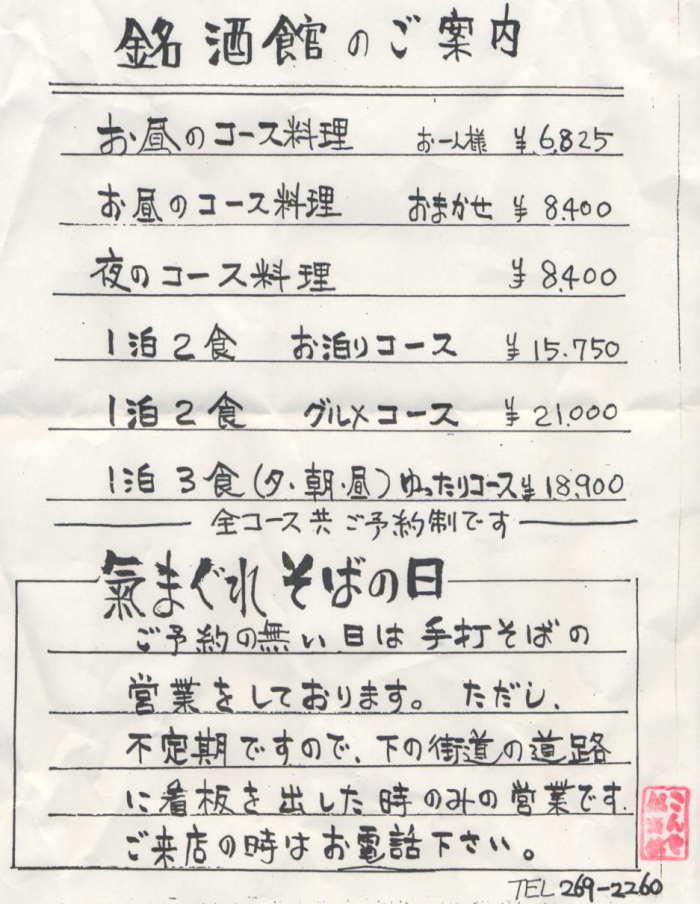 銘酒館のご案内
お昼のコース料理 お一人様 ¥6,825
お昼のコース料理 おまかせ ¥8.400
夜のコース料理 ¥8,400
1泊2食 お泊りコース ¥15.750
1泊2食 グルメコース ¥21.000
1泊3食(夕・朝・昼)ゆったりコース ¥18,900
全コース共ご予約制です
氣まぐれそばの日
ご予約の無い日は手打そばの
営業をしております。ただし、
不定期ですので、下の街道の道路
に看板を出した時のみの営業です.
ご来店の時はお電話下さい。
こんや
TEL 269-2260